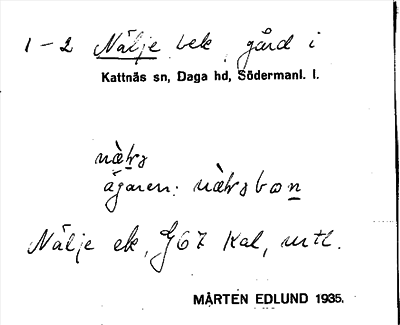 1-2 Nälje bek. gård i
Kattnäs sn, Daga hd, Södermanl. l.
nätrs
ägaren: nätrsbon
Nälje ek, G67 Kal, mtl.
MÅRTEN EDLUND 1935.